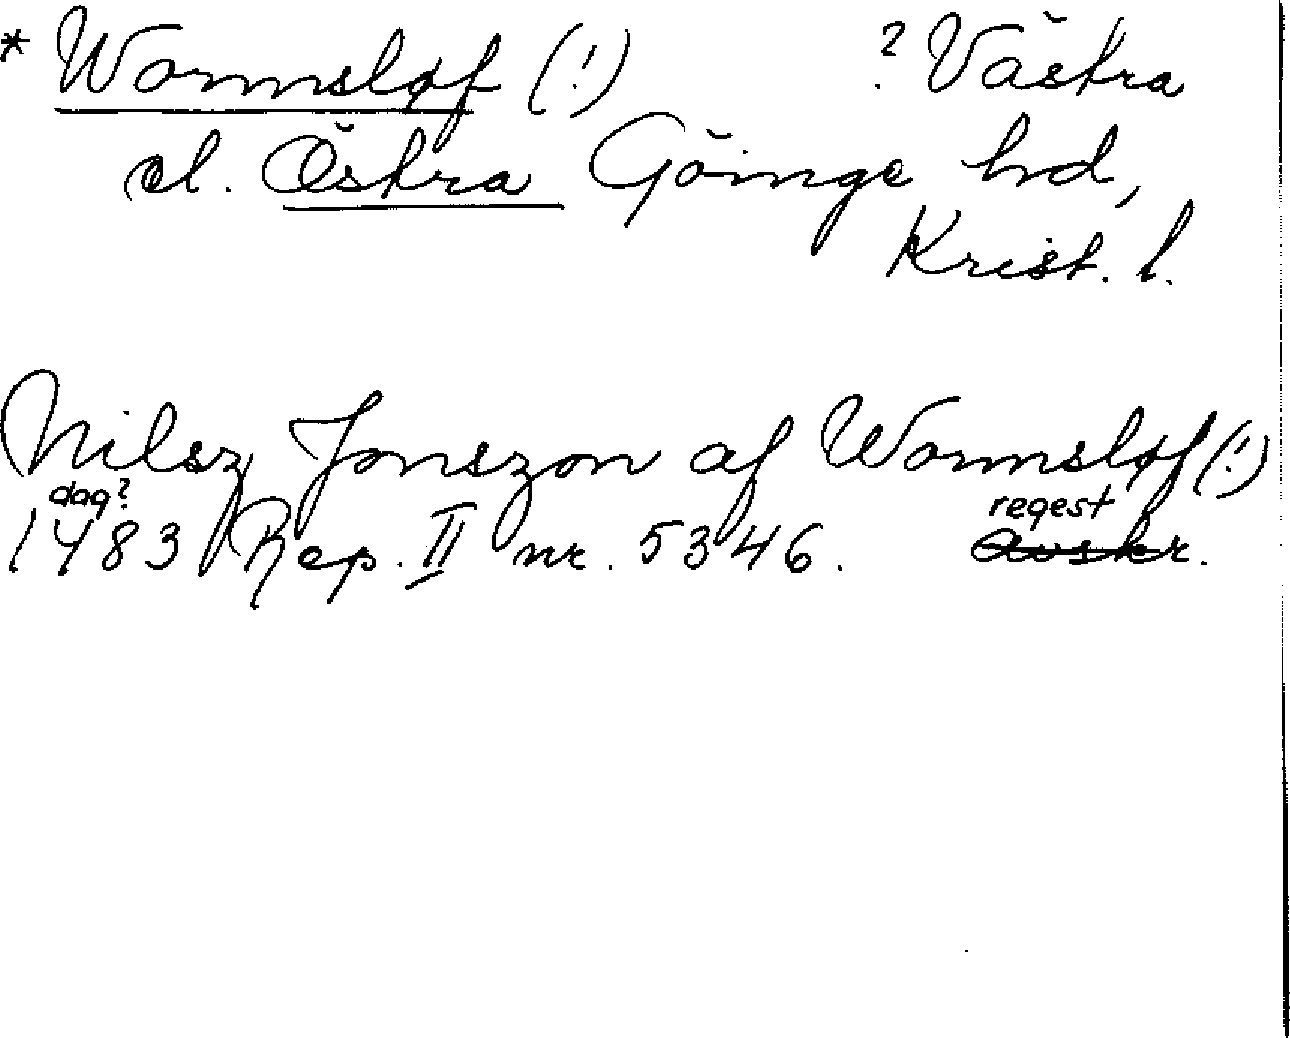 * Wormsløf (!) ? Västra
el. Östra Göinge hd,
Krist. l.
Nilsz Jonszon af Wormsløf (!)
dag? regest
1483 Rep. II nr. 5346. avskr.